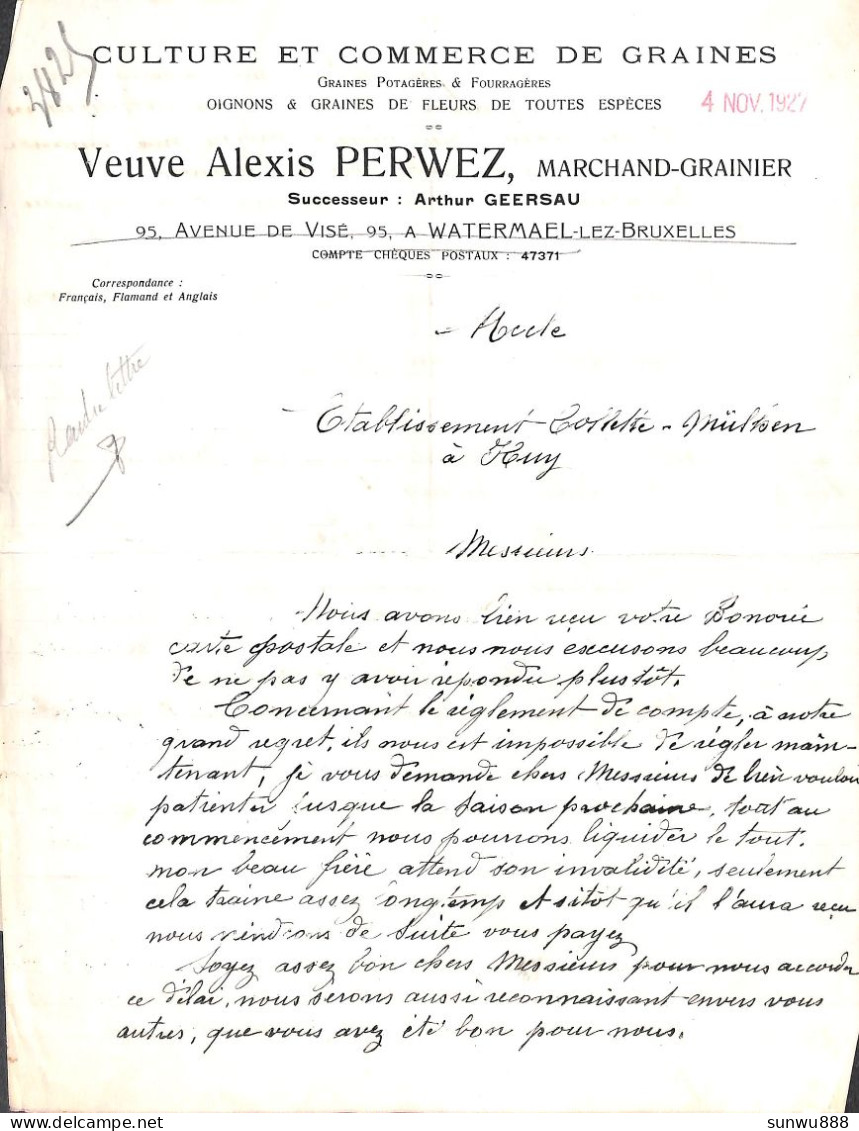 2825
CULTURE ET COMMERCE DE GRAINES
GRAINES POTAGÈRES & FOURRAGÈRES
OIGNONS & GRAINES DE FLEURS DE TOUTES ESPÈCES
4 NOV. 1927
Veuve Alexis PERWEZ, MARCHAND-GRAINIER
Successeur : Arthur GEERSAU
95, AVENUE DE VISÉ, 95, A WATERMAEL-LEZ-BRUXELLES
COMPTE CHÈQUES POSTAUX : 47371
Correspondance :
Français, Flamand et Anglais
lettre
Etablissement Collette - Mülken
à Huy
Messieurs
Nous avons bien reçu votre Honorée
carte postale et nous nous excusons beaucoup
de ne pas y avoir répondu plustôt.
Concernant le règlement de compte, à notre
grand regret, ils nous est impossible de régler main-
tenant, je vous demande chers Messieurs de bien vouloir
patienter jusque la saison prochaine, tout au
commencément nous pourrons liquider le tout.
mon beau frère attend son invalidité, seulement
cela traine assez longtemp et sitôt qu'il l'aura reçu
nous viendrons de suite vous payez
Soyez assez bon chers Messieurs pour nous accorder
ce délai, nous serons aussi reconnaissant envers vous
autres, que vous avez été bon pour nous.
sunwu888